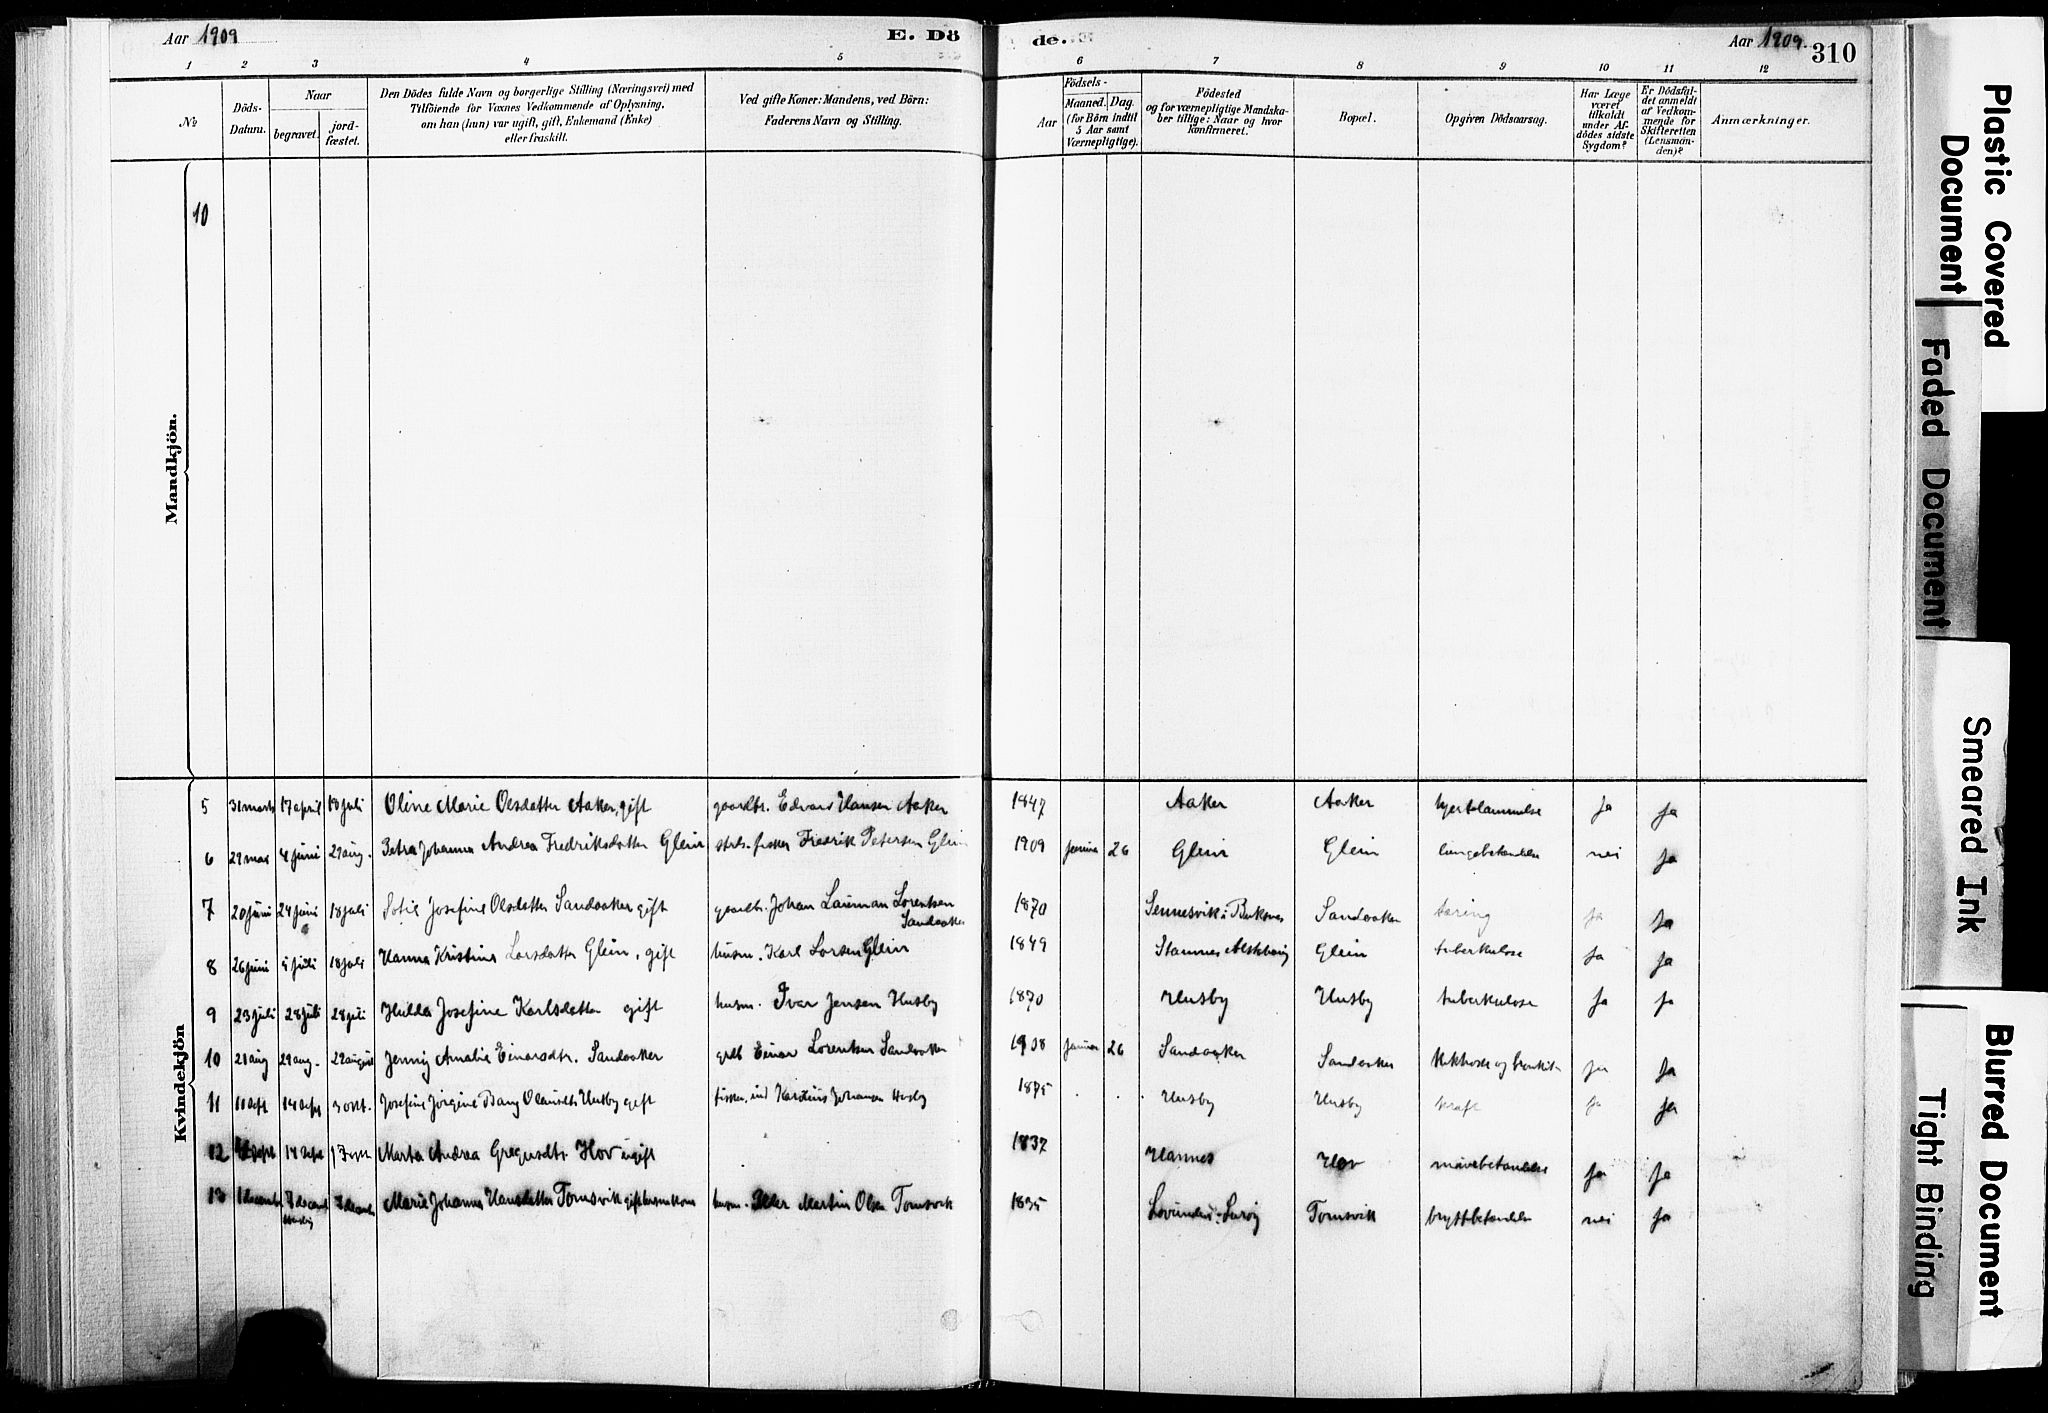 Aar 1909
E. Dö
de.
Aar 1909.
310
1 2 3 4 5 6 7 8 9 10 11 12
№
Döds-
Datum.
Naar
begravet.
jord-
fæstet.
Den Dödes fulde Navn og borgerlige Stilling (Næringsvei) med
Tilföiende for Voxnes Vedkommende af Oplysning,
om han (hun) var ugift, gift, Enkemand (Enke)
eller fraskilt.
Ved gifte Koner: Mandens, ved Börn:
Faderens Navn og Stilling.
Födsels-
Aar
Maaned. Dag.
(for Börn indtil
5 Aar samt
Værnepligtige).
Födested
og for værnepligtige Mandska-
ber tillige: Naar og hvor
Konfirmeret.
Bopæl.
Opgiven Dödsaarsag.
Har Læge
været
tilkaldt
under Af-
dödes sidste
Sygdom?
Er Dödsfal-
det anmeldt
af Vedkom-
mende for
Skifteretten
(Lensman-
den)?
Anmærkninger.
Mandkjön.
10
Kvindekjön
5 31 marts 17 april 18 juli Oline Marie Olsdatter Aaker, gift gaardbr. Edvard Hansen Aaker 1847 Aaker Aaker hjertelammelse ja ja
6 29 mai 4 juni 29 aug. Petra Johanna Andrea Fredriksdatter Glein fisker Fredrik Petersen Glein 1909 januar 26 Glein Glein lungebetændelse nei ja
7 20 juni 24 juni 18 juli Josefine Olsdatter Sandaaker gift gaardbr. Johan Lorentsen
Sandaaker 1870 Sennesvik i Buksnes Sandaaker tæring ja ja
8 26 juni juli 18 juli Hanna Kristine Larsdatter Glein, gift husm. Karl Larsen Glein 1849 Stamnes Alstahaug Glein tuberkulose ja ja
9 23 juli 28 juli 28 juli Hilda Josefine Karlsdatter gift husm. Ivar Jensen Husby 1870 Husby Husby tuberkulose ja ja
10 21 aug 29 aug. 29 august Jenny Amalie Einarsdtr. Sandaaker Einar Lorentsen Sandaaker 1908 januar 26 Sandaaker Sandaaker kikhoste og bronkit ja ja
11 11 sept 14 sept 3 okt. Josefine Jørgine Bang Husby gift Johansen Husby 1875 Husby Husby kræft ja ja
12 sept 14 sept sept Marta Andrea Hov ugift 1837 Hannes Hov mavebetændelse ja ja
13 1 decemb 7 Marie Johanna Hansdatter Tomsvik gift husm. Peder Martin Olsen Tomsvik 1835 Lovunden i Lurøy Tomsvik brystbetændelse nei ja
Plastic Covered
Document
Faded Document
Smeared Ink
Blurred Document
Tight Binding